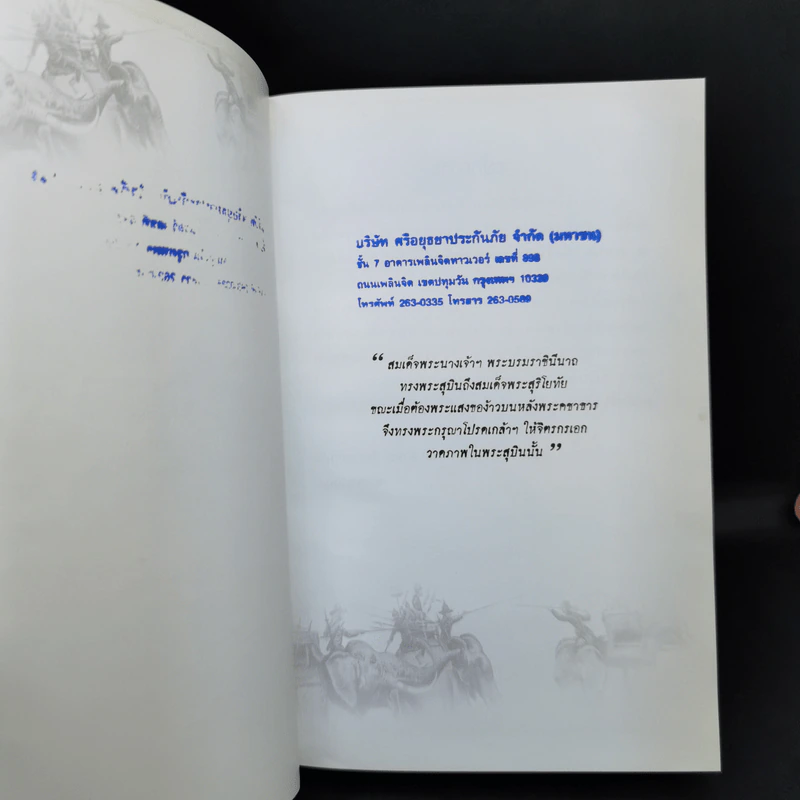 บริษัท ศรีอยุธยาประกันภัย จำกัด (มหาชน)
ชั้น 7 อาคารเพลินจิตทาวเวอร์ เลขที่ 898
ถนนเพลินจิต เขตปทุมวัน กรุงเทพฯ 10330
โทรศัพท์ 263-0335 โทรสาร 263-0589
“ สมเด็จพระนางเจ้าฯ พระบรมราชินีนาถ
ทรงพระสุบินถึงสมเด็จพระสุริโยทัย
ขณะเมื่อต้องพระแสงของ้าวบนหลังพระคชาธาร
จึงทรงพระกรุณาโปรดเกล้าฯ ให้จิตรกรเอก
วาดภาพในพระสุบินนั้น ”